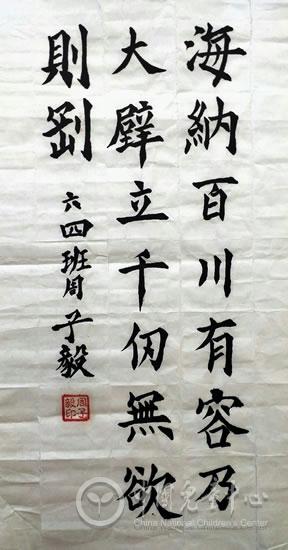 海納百川有容乃
大壁立千仞無欲
則剛
六四班周子毅
周子毅印
中国儿童中心
China National Children's Center